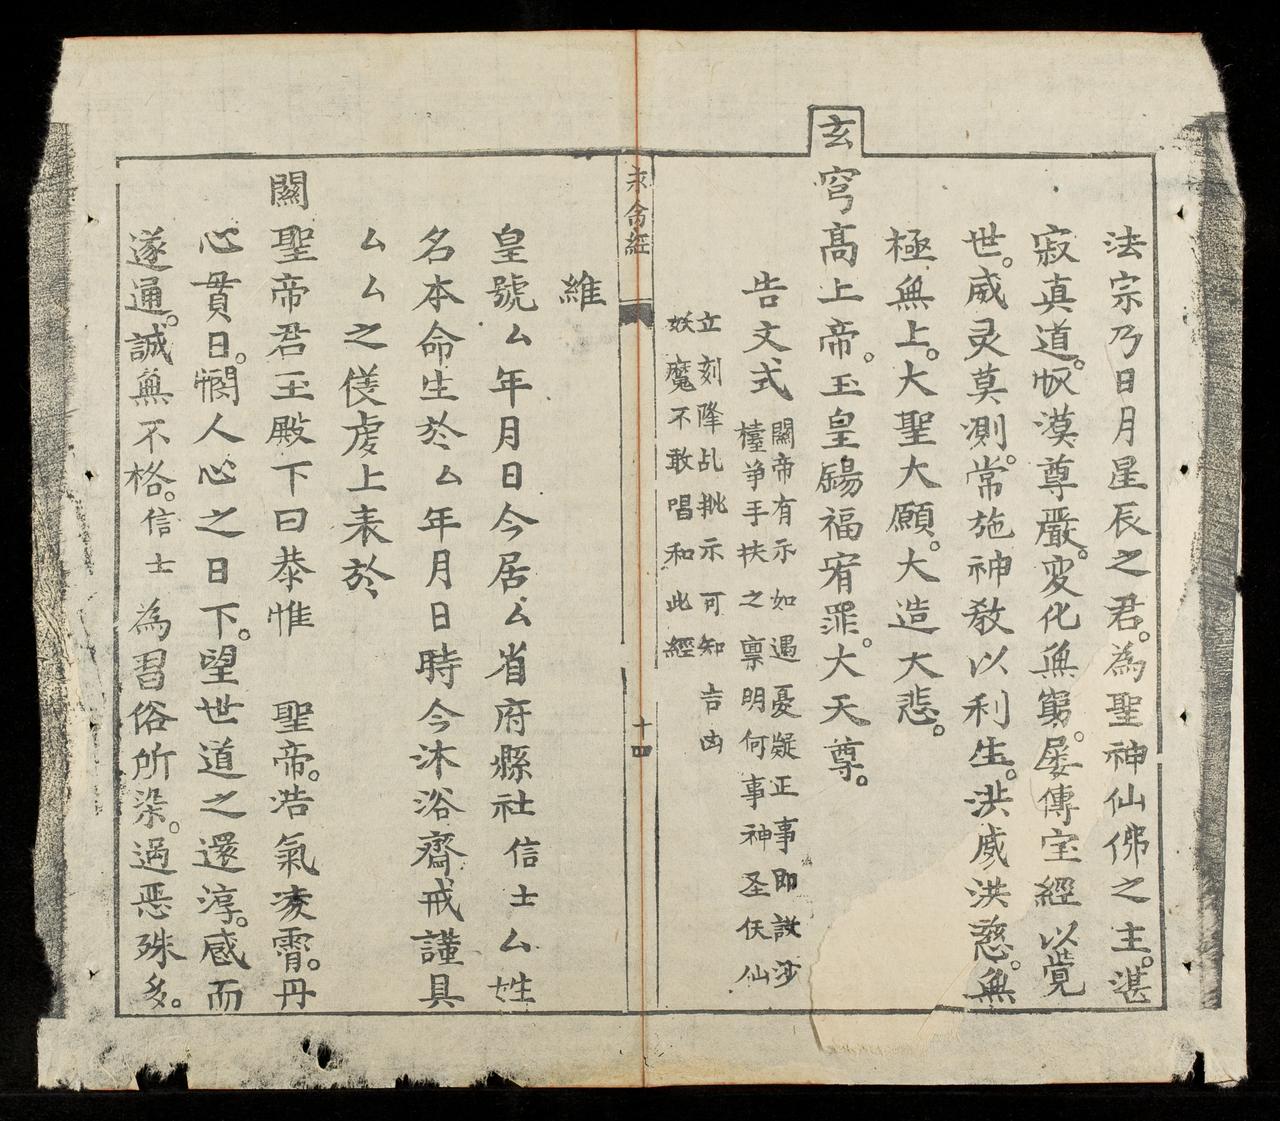 法宗乃日月星辰之君。為聖神仙佛之主。湛
寂真道。怳漠尊嚴。変化無窮。屡傳宝經以覺
世。威灵莫测。常施神教以利生。洪威洪慈。無
極無上。大聖大願。大造大悲。
玄穹高上帝。玉皇錫福宥罪。大天尊。
告文式 關帝有示如遇憂疑正事即設沙
檯爭手扶之禀明何事神圣伏仙
立刻降乩挑示可知吉凶
妖魔不敢唱和此經
永命經
十四
維
皇號厶年月日今居厶省府縣社信士厶姓
名本命生於厶年月日時今沐浴齋戒謹具
厶厶之儀虔上表於
關聖帝君玉殿下曰恭惟 聖帝。浩氣凌霄。丹
心貫日。憫人心之日下。望世道之還淳。感而
遂通。誠無不格。信士 為習俗所染。過恶殊多。